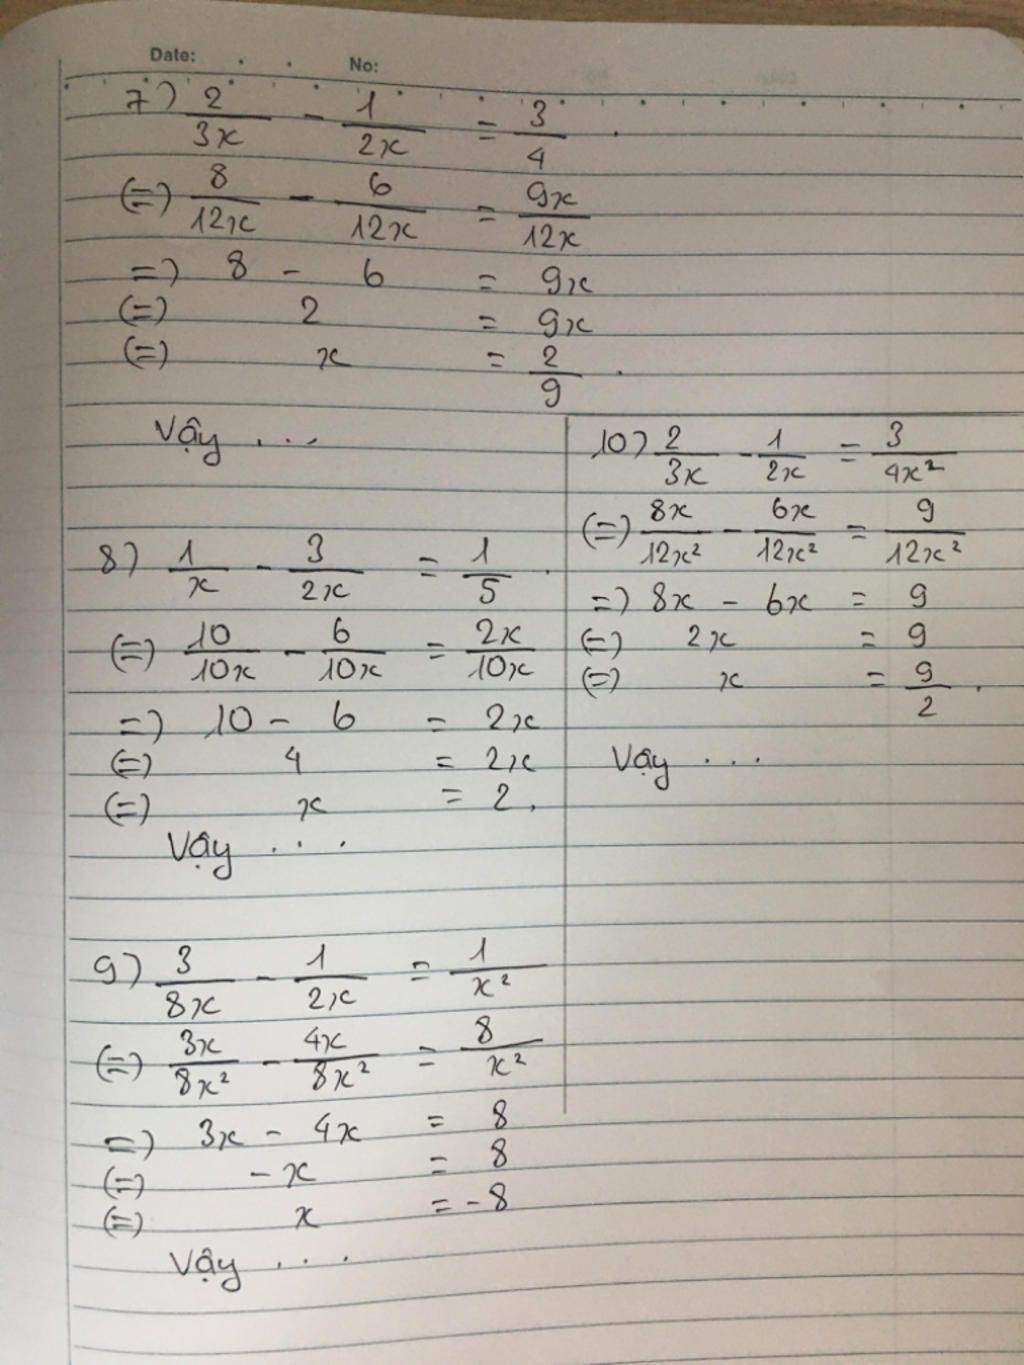 Date: No:
7) 2/3x - 1/2x = 3/4.
(=) 8/12x - 6/12x = 9x/12x
=) 8 - 6 = 9x
(=) 2 = 9x
(=) x = 2/9.
Vậy ...
8) 1/x - 3/2x = 1/5.
(=) 10/10x - 6/10x = 2x/10x
=) 10 - 6 = 2x
(=) 4 = 2x
(=) x = 2.
Vậy ...
9) 3/8x - 1/2x = 1/x²
(=) 3x/8x² - 4x/8x² = 8/x²
=) 3x - 4x = 8
(=) -x = 8
(=) x = -8
Vậy ...
10) 2/3x - 1/2x = 3/4x²
(=) 8x/12x² - 6x/12x² = 9/12x²
=) 8x - 6x = 9
(=) 2x = 9
(=) x = 9/2.
Vậy ...